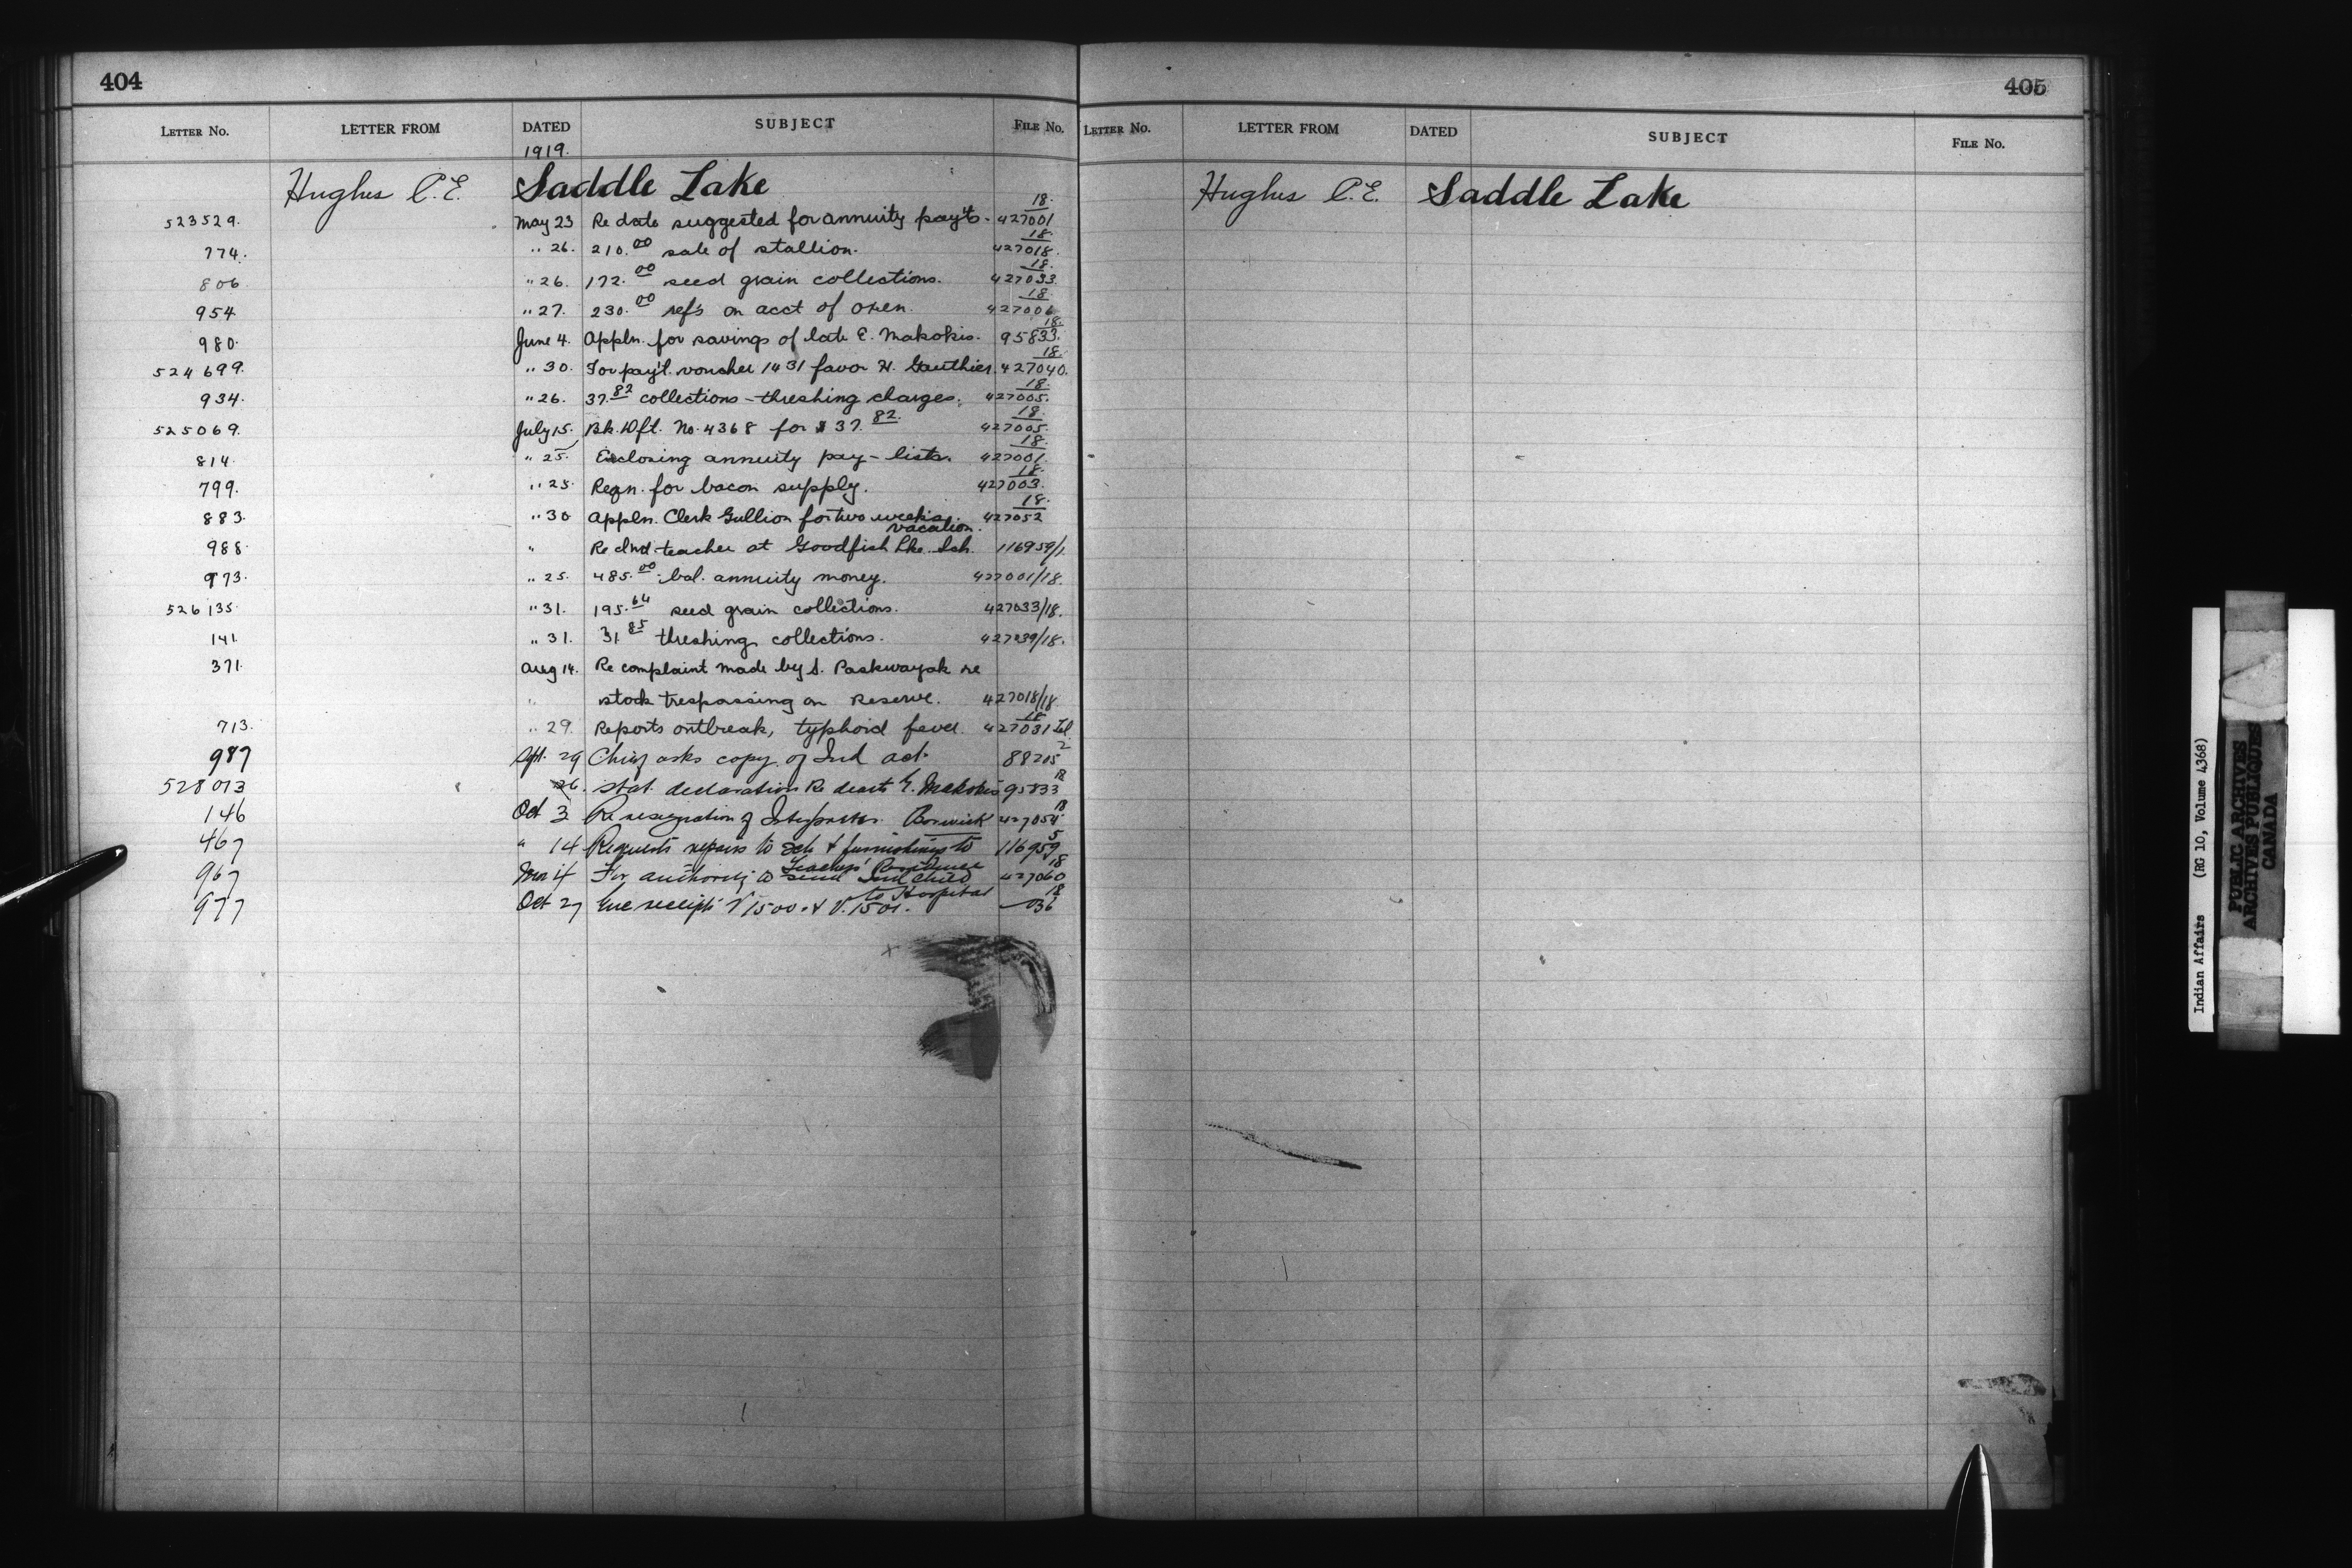 404
LETTER No. LETTER FROM DATED SUBJECT FILE No.
1919.
Hughes C.E. Saddle Lake
523529. May 23 Re date suggested for annuity pay'ts - 427001/18.
774. " 26. 210.00 sale of stallion. 427018/18.
806 " 26. 172.00 seed grain collections. 427033/18.
954 " 27. 230.00 ref's on acct of oxen. 427006/18.
980. June 4. Appln. for savings of late E. Makokis. 95833/18.
524699. " 30. For pay't. voucher 1431 favor H. Gauthier. 427040/18.
934. " 26. 37.82 collections - threshing charges. 427005/18.
525069. July 15. Bk. Dft. No. 4368 for $37.82. 427005/18.
814. " 25. Enclosing annuity pay-lists. 427001/18.
799. " 25. Reqn. for bacon supply. 427003/18.
883. " 30 Appln. Clerk Gullion for two week's vacation. 427052/18.
988. " Re Ind teacher at Goodfish Lke. Sch. 116959/1.
973. " 25. 485.00 bal. annuity money. 427001/18.
526135. " 31. 195.64 seed grain collections. 427033/18.
141. " 31. 31.85 threshing collections. 427239/18.
371. Aug 14. Re complaint made by S. Paskwayak re
" stock trespassing on Reserve. 427018/18
713. " 29. Reports outbreak, typhoid fever. 427031/18 Tel
987 Spt. 29 Chief asks copy of Ind act. 88205/2
528073 26. Stat. declaration Re death E. Makokis 95833/18
146 Oct 3 Re resignation of Interpreter Borwick 427054/18
467 " 14 Requests repairs to Sch & furnishings to Teachers' Residence 116959/5
967 Nov 4 For authority to send Ind child to Hospital 427060/18
977 Oct 27 Enc receipts V 1500 & V. 1501. 036/18
405
LETTER No. LETTER FROM DATED SUBJECT FILE No.
Hughes C.E. Saddle Lake
Indian Affairs (RG 10, Volume 4368)
PUBLIC ARCHIVES
ARCHIVES PUBLIQUES
CANADA